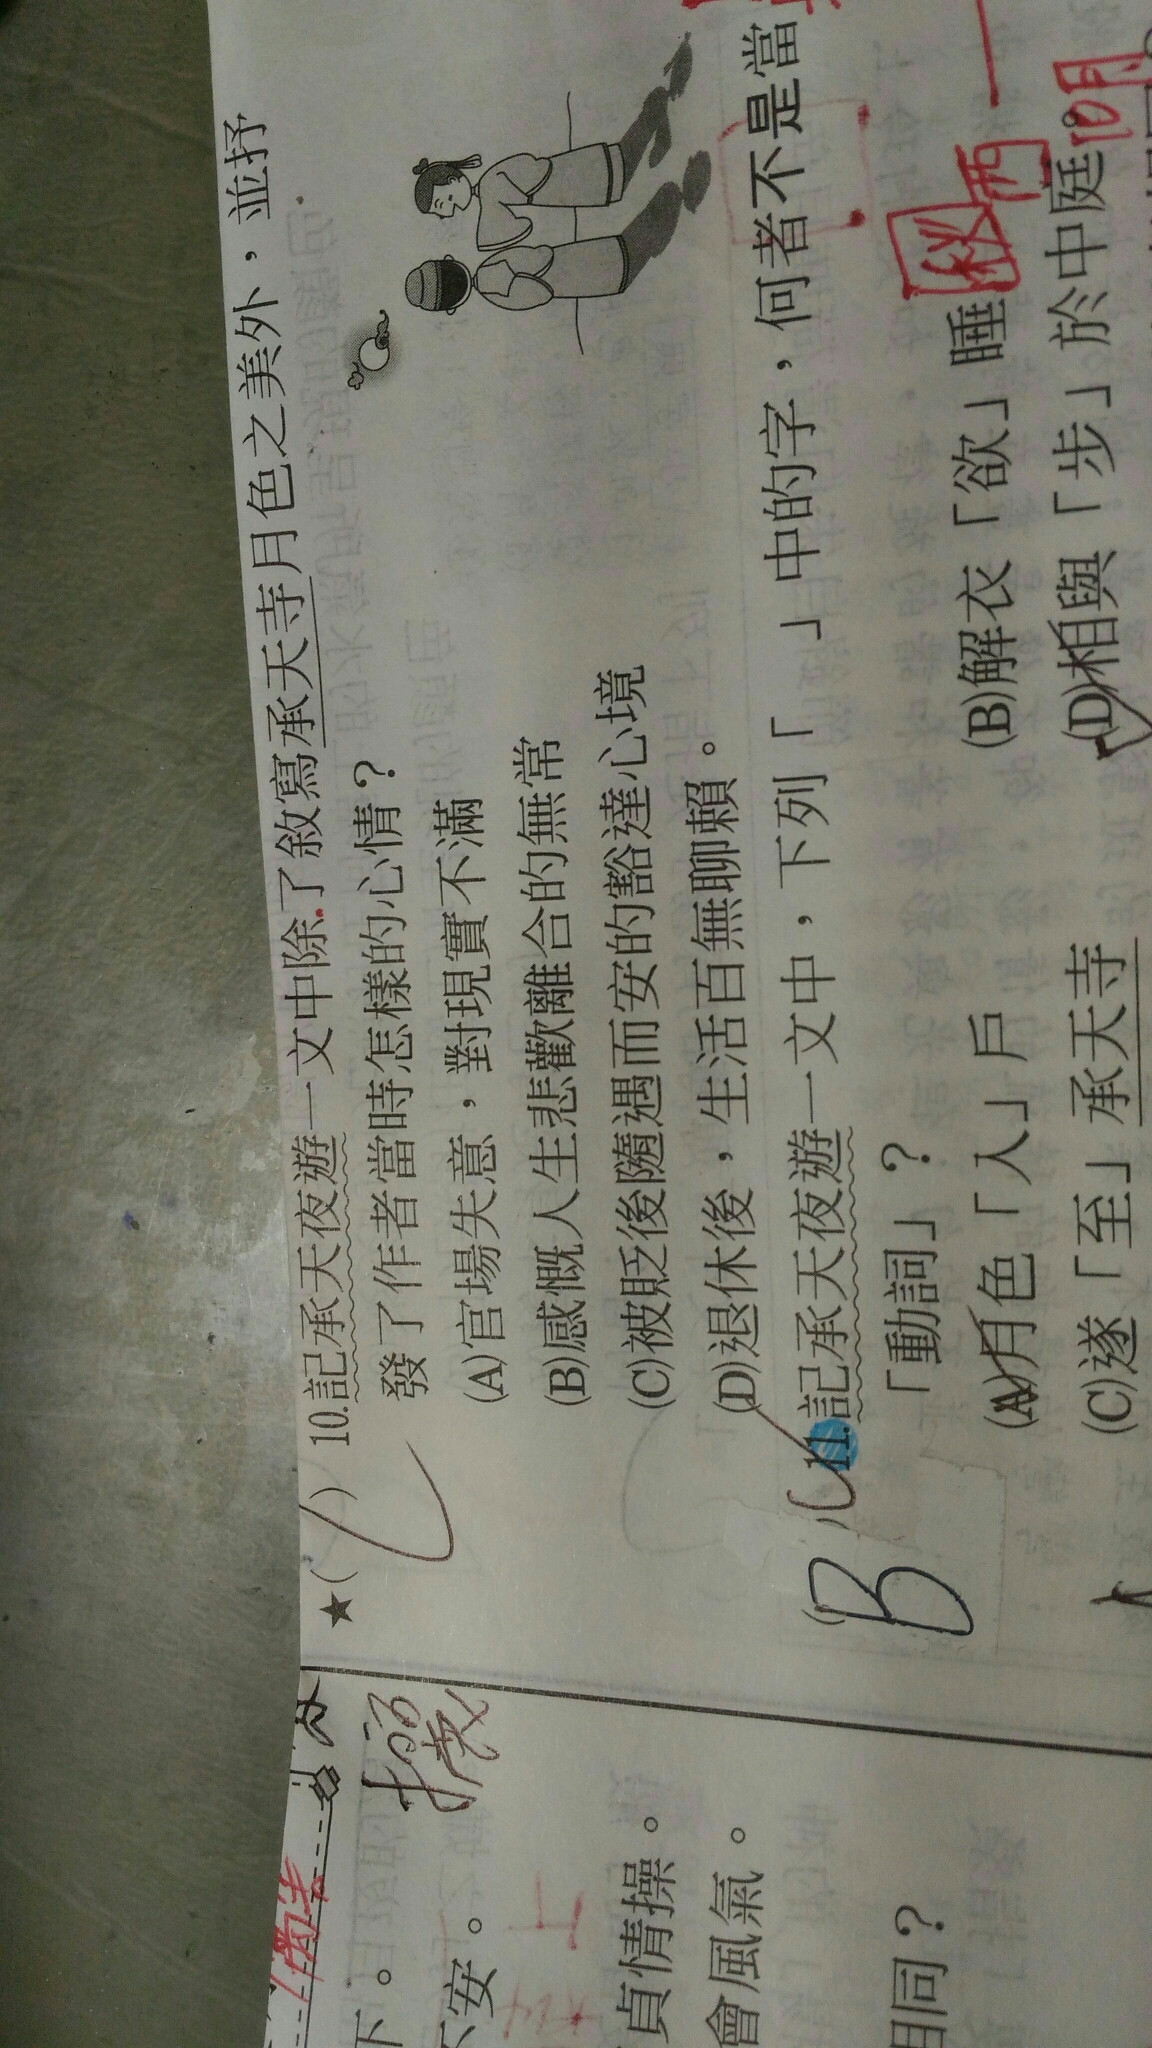 ★( ) 10.記承天夜遊一文中除了敘寫承天寺月色之美外，並抒
發了作者當時怎樣的心情？
(A)官場失意，對現實不滿
(B)感慨人生悲歡離合的無常
(C)被貶後隨遇而安的豁達心境
(D)退休後，生活百無聊賴。
(B) 11.記承天夜遊一文中，下列「　」中的字，何者不是當
「動詞」？
(A)月色「入」戶 (B)解衣「欲」睡
(C)遂「至」承天寺 (D)相與「步」於中庭
秋
10月
下。
不安。
貞情操。
會風氣。
相同？